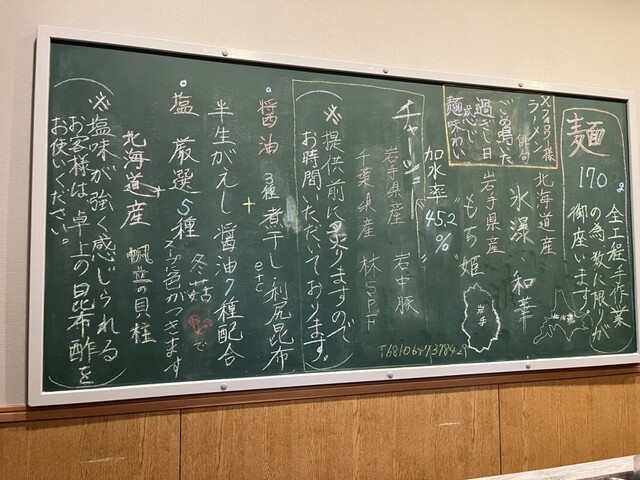 麺 170g
全工程手作業
の為数に限りが
御座います
ラーメン 俳句
ごめ鳴た
過ぎし日
感じ
麺味わい
北海道産
氷漠 和華
岩手県産
"もち姫"
岩手
加水率
"45.2%"
チャーシュー
岩手県産 岩中豚
千葉県産 林SPF
※提供前に炙りますので
お時間いただいております。
醤油 3種煮干し 利尻昆布
etc
+
半生がえし醤油7種配合
塩 厳選5種 冬菇
で
スープに色がつきます
+
北海道産 帆立の貝柱
※塩味が強く感じられる
お客様は卓上の昆布酢を
お使いください。